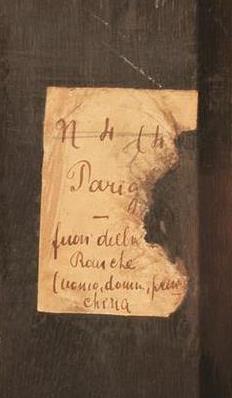 N 4 (4
Parig
fuori delle
Ronche
(uomo, donna,
china